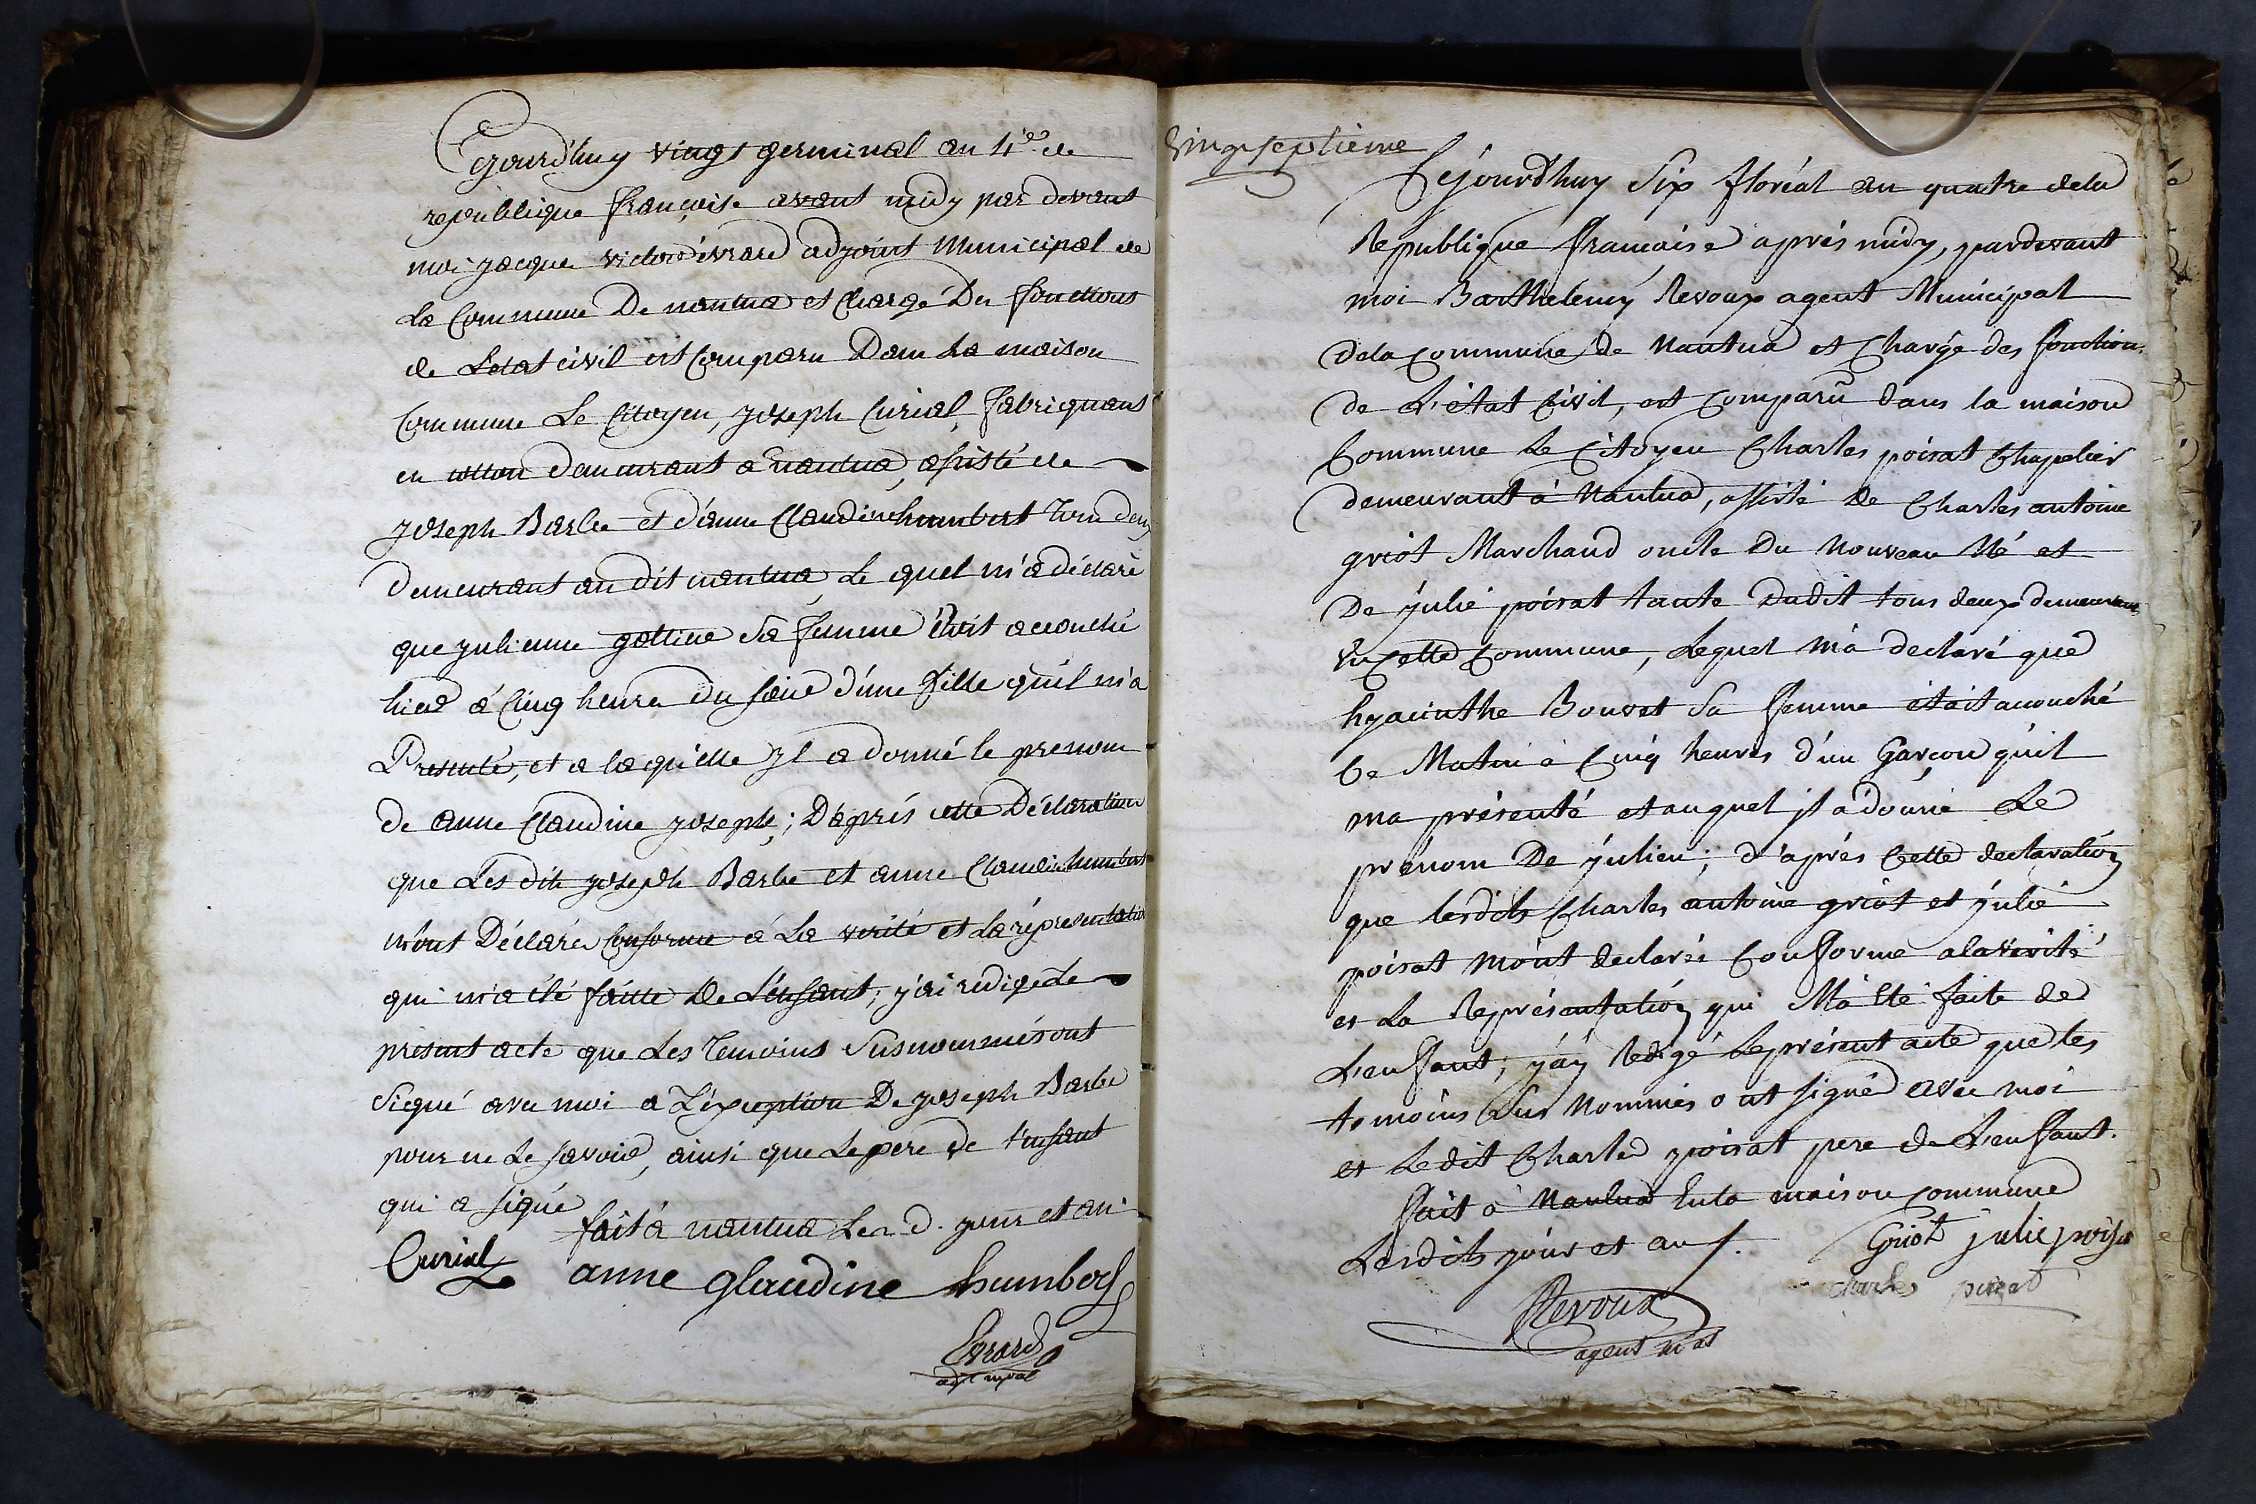 Cejourd'huy vingt germinal an 4ie de
republique françoise avant midy par devant
moi jacque victor évrard adjoint Municipal de
La Commune De nantua et Chargé Des fonctions
de Letat civil est Comparu Dans La maison
Commune Le Citoyen, joseph Curial, fabriquant
en cotton demeurant a nantua, assisté de
joseph Barbe et d'anne Claudine humbert Tous deux
demeurant au dit nantua, Le quel m'a déclaré
que julienne gottine sa femme étoit accouché
hier à Cinq heures du soir d'une fille qu'il m'a
Presenté, et a laqu'elle jl a donné le prenom
de anne Claudine joseph; D'après cette Déclaration
que Les dits joseph Barbe et anne Claudine humbert
m'ont Déclarés Conforme a La verité et La représentation
qui m'a été faitte de L'enfant, j'ai redigé Le
présent acte que Les Temoins Susnommés ont
Signé avec moi a L'exception De joseph Barbe
pour ne Le savoir, ainsi que Le pere de l'enfant
qui a signé
fait à nantua Les d. jour et an
Curial anne glaudine humbert
Evrard
adjt mpal
Vingt septieme
Cejourd'huy Six floréal an quatre dela
Republique francaise après midy, pardevant
moi Barthelemy Revoux agent Municipal
dela Commune de Nantua et Chargé des fonctions
de L'état Civil, est Comparu dans la maison
Commune Le Citoyen Charles poisat Chapelier
demeurant à Nantua, assisté de Charles antoine
griot Marchand oncle Du Nouveau Né et
De julie poisat tante Dudit tous deux demeurant
En Cette Commune, Lequel m'a declaré que
hyacinthe Bouvet Sa femme était acouché
Ce Matin à Cinq heures d'un Garçon qu'il
ma présenté et auquel jl a donné Le
prénom De julien; d'après Cette declaration
que lesdits Charles antoine griot et julie
poisat m'ont declarée Conforme a la verité
et La Représentation qui M'a Eté faite de
L'enfant; j'ay Redigé Le présent acte que les
temoins Sus Nommés ont signé avec moi
et Ledit Charles poisat pere de L'enfant.
fait à Nantua En la maison Commune
Lesdits jour et an.
Griot julie poisa
Charles poisat
Revoux
agent mal